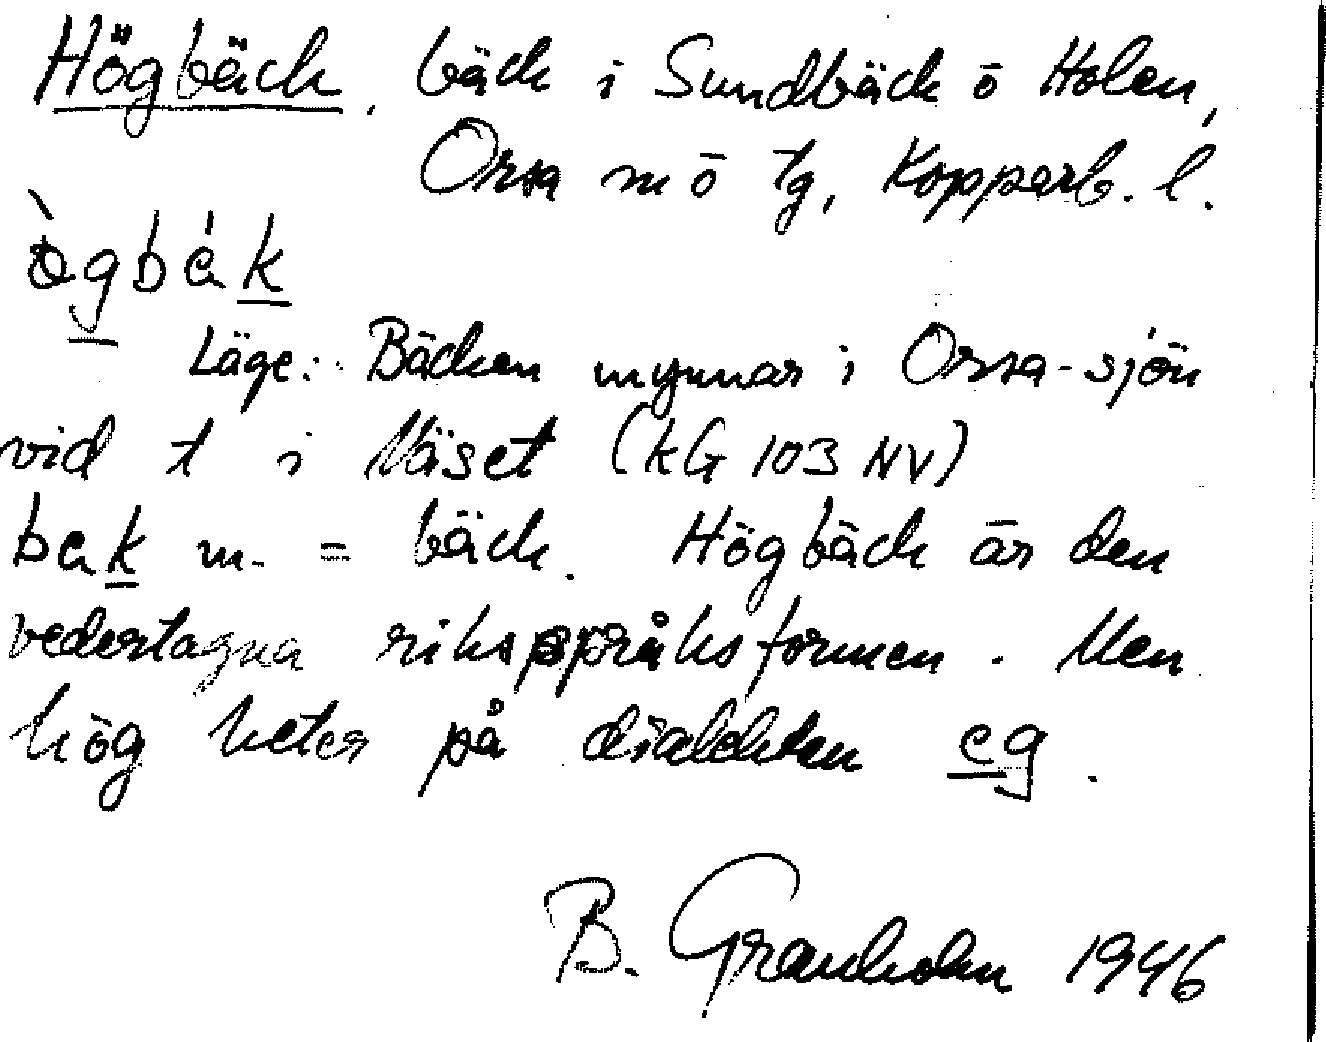 Högbäck, bäck i Sundbäck o Holen,
Orsa m o tg, Kopparb. l.
ògbák
Läge: Bäcken mynnar i Orsa-sjön
vid t i Näset (KG 103 NV)
bak m. = bäck. Högbäck är den
vedertagna riksspråksformen. Men
hög heter på dialekten eg.
B. Granholm 1946